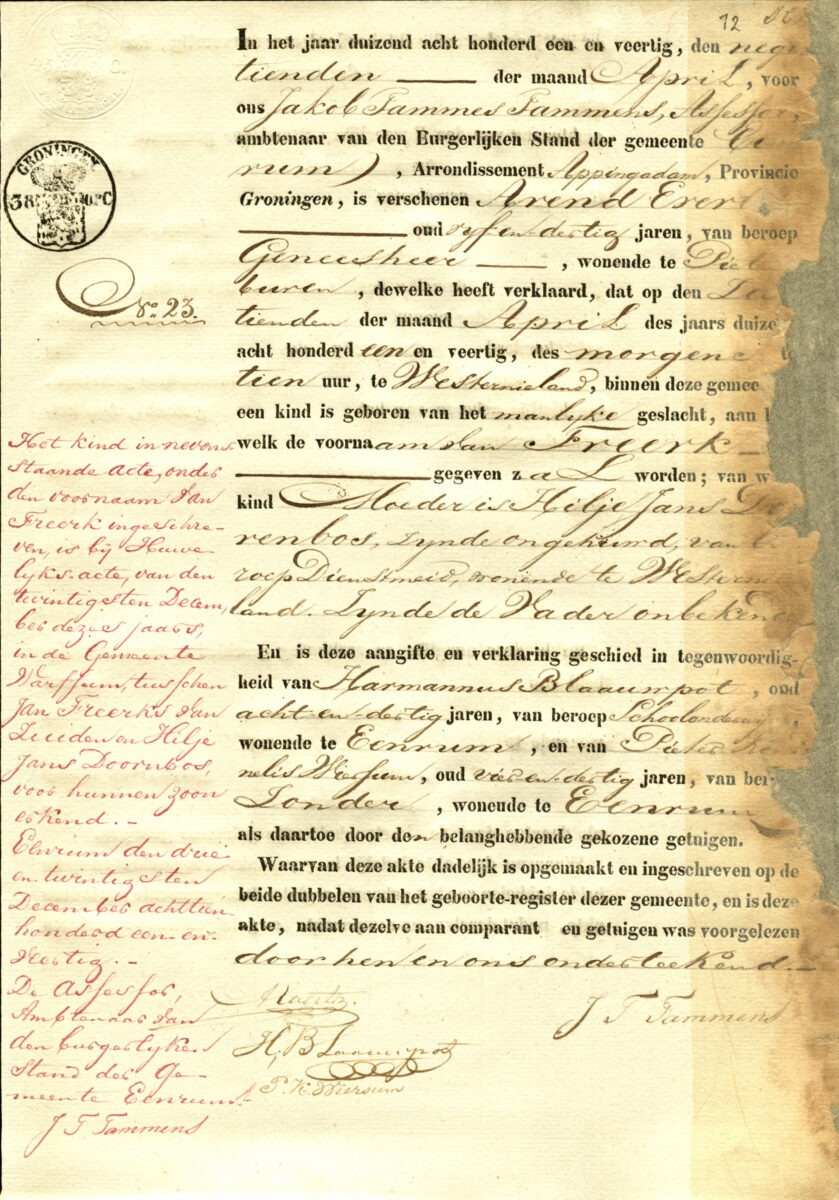 12
In het jaar duizend acht honderd een en veertig, den nege
tienden der maand April, voor
ons Jakob Tammes Tammens, Assessor,
ambtenaar van den Burgerlijken Stand der gemeente
rum, Arrondissement Appingadam, Provincie
Groningen, is verschenen Arend Evert
oud vyf en dertig jaren, van beroep
Geneesheer, wonende te Piet
buren, dewelke heeft verklaard, dat op den
tienden der maand April des jaars duize
acht honderd een en veertig, des morgens te
tien uur, te Westernieland, binnen deze gemee
een kind is geboren van het manlyke geslacht, aan
welk de voornaam van Freerk
gegeven zal worden; van w
kind Moeder is Hilje Jans Do
renbos, zynde ongehuwd, van be
roep Dienstmeid, wonende te Westernie
land. Zynde de Vader onbekend
En is deze aangifte en verklaring geschied in tegenwoordig-
heid van Harmannus Blaauwpot, oud
acht en dertig jaren, van beroep Schoolonderwy
wonende te Eenrum, en van Pieter Kor
nelis Wiersum, oud vier en dertig jaren, van ber
Zonder, wonende te Eenrum
als daartoe door den belanghebbende gekozene getuigen.
Waarvan deze akte dadelijk is opgemaakt en ingeschreven op de
beide dubbelen van het geboorte-register dezer gemeente, en is deze
akte, nadat dezelve aan comparant en getuigen was voorgelezen
door hen en ons onderteekend.
J T Tammens
H, Blaauwpot
P. K. Wiersum
GRONINGEN
38
No. 23.
Het kind in nevens
staande acte, onder
den voornaam van
Freerk ingeschre-
ven, is bij Huwe-
lyks acte, van den
twintigsten Decem,
ber dezes jaars,
in de Gemeente
Warffum, tusschen
Jan Freerks van
Zuiden en Hilje
Jans Doornbos,
voor hunnen zoon
erkend. -
Eenrum den drie
en twintigsten
December achttien
honderd een en
veertig. -
De Assessor,
Ambtenaar van
den burgerlyken
stand der Ge-
meente Eenrum.
J T Tammens